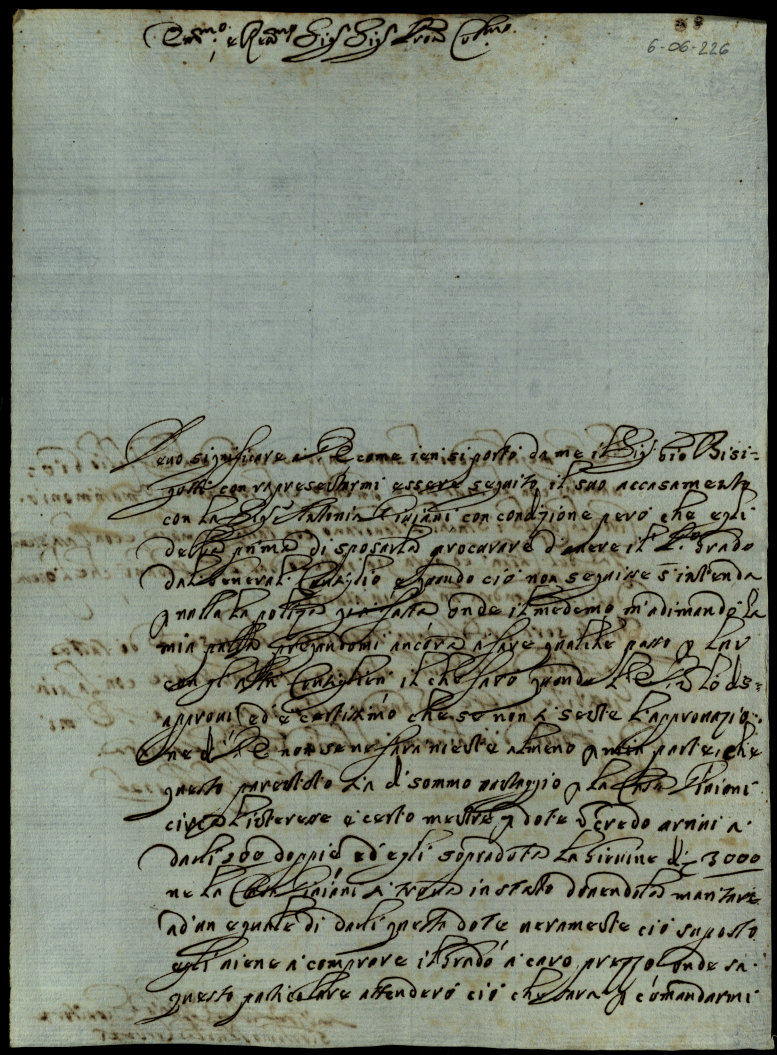 Em.mo e Rev.mo Sig.r Sig.r Pron Col.mo
6-06-226
Devo significare a V.E. come ieri si portò da me il Sig.r Gio Bisi=
gotti con rapresentarmi essere seguito il suo accasamento
con la Sig.ra Antonia Viviani con condizione però che egli
debba prima di sposarla procurare d'avere il P.mo Grado
dal General Consiglio e quando ciò non seguisse s'intenda
nulla la poliza già fatta onde il medemo m'adimandò la
mia pregandomi ancora a fare qualche passo p lui
con gl'altri Consiglieri il che farò quando V.E. non lo dis=
approvi ed è certissimo che se non vi sente l'approvazio=
ne di V.E. non se ne farà niente almeno p mia parte, che
questo parentato sia di sommo vantaggio p la Casa Viviani
circa l'interesse è certo mentre p dote credo arrivi a
darli 200 doppie ed egli sopradota la Giovine di 3000
ne la Casa Viviani si trova in stato dovendola maritare
ad un eguale di darli questa dote veramente ciò suposto
egli viene a comprare il Grado a caro prezzo onde su
questo particolare attenderò ciò che sarà p comandarmi